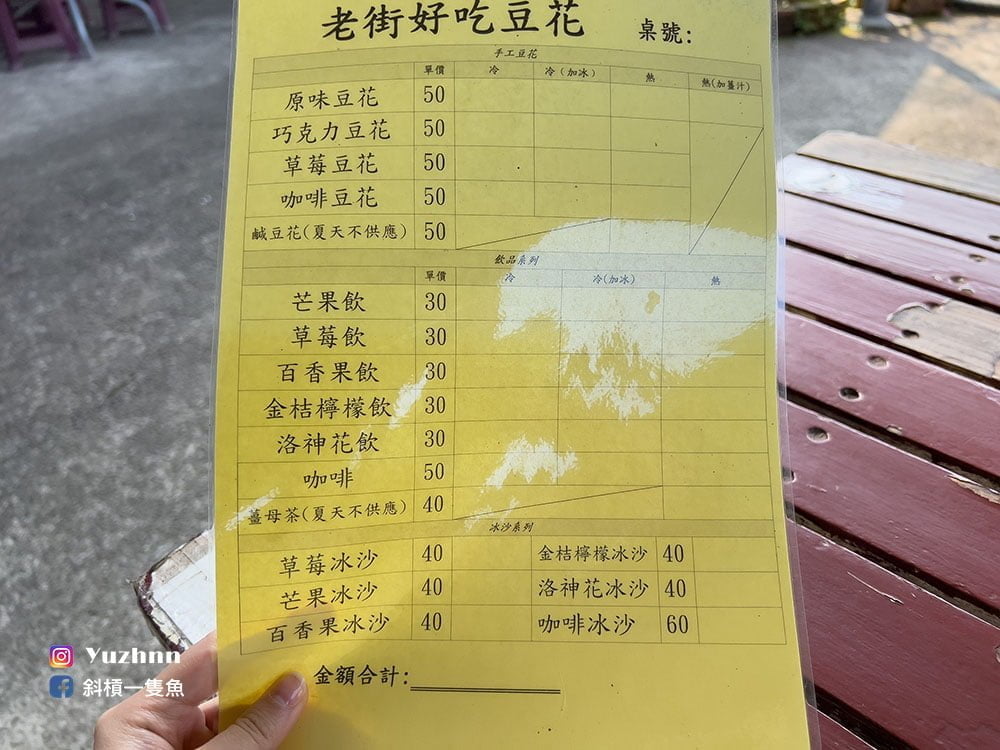 老街好吃豆花 桌號:
手工豆花
單價 冷 冷(加冰) 熱 熱(加薑汁)
原味豆花 50
巧克力豆花 50
草莓豆花 50
咖啡豆花 50
鹹豆花(夏天不供應) 50
飲品系列
單價 冷 冷(加冰) 熱
芒果飲 30
草莓飲 30
百香果飲 30
金桔檸檬飲 30
洛神花飲 30
咖啡 50
薑母茶(夏天不供應) 40
冰沙系列
草莓冰沙 40 金桔檸檬冰沙 40
芒果冰沙 40 洛神花冰沙 40
百香果冰沙 40 咖啡冰沙 60
金額合計:
Yuzhnn
斜槓一隻魚